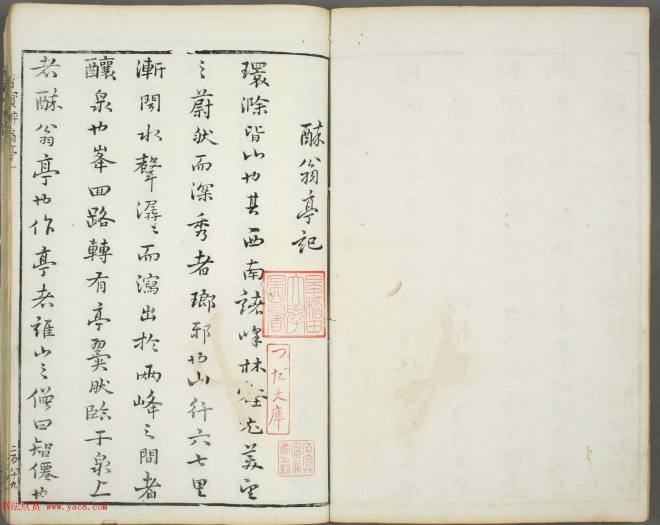 醉翁亭記
環滁皆山也其西南諸峰林壑尤美望
之蔚然而深秀者瑯邪也山行六七里
漸聞水聲潺〻而瀉出於兩峰之間者
釀泉也峯回路轉有亭翼然臨于泉上
者醉翁亭也作亭者誰山之僧曰智僊也
早稲田大学図書
つだ文庫
书法欣赏 www.yac8.com